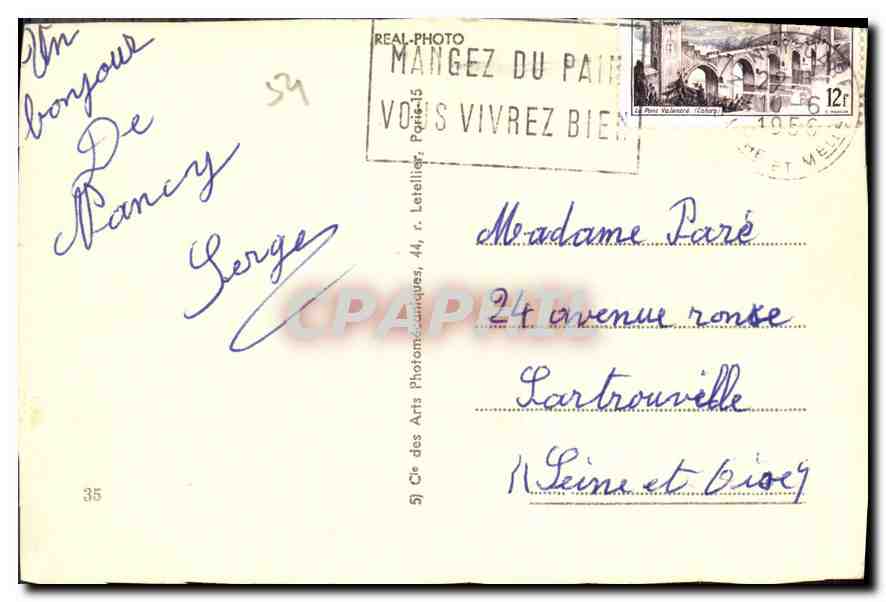 Un
bonjour
De
Nancy
Serge
54
35
REAL-PHOTO
MANGEZ DU PAIN
VOUS VIVREZ BIEN
5) Cie des Arts Photomécaniques, 44, r. Letellier, Paris-15
Le Pont Valentré (Cahors)
12f
1956
ET
Madame Paré
24 avenue ronse
Sartrouville
(Seine et Oise)
CPAPHIL